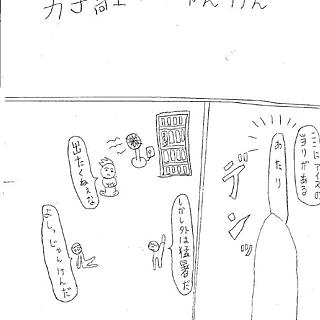 ここにアイスの
当りがある
あたり
デンッ
出たくねぇな
しかし外は猛暑だ
よしっじゃんけんだ